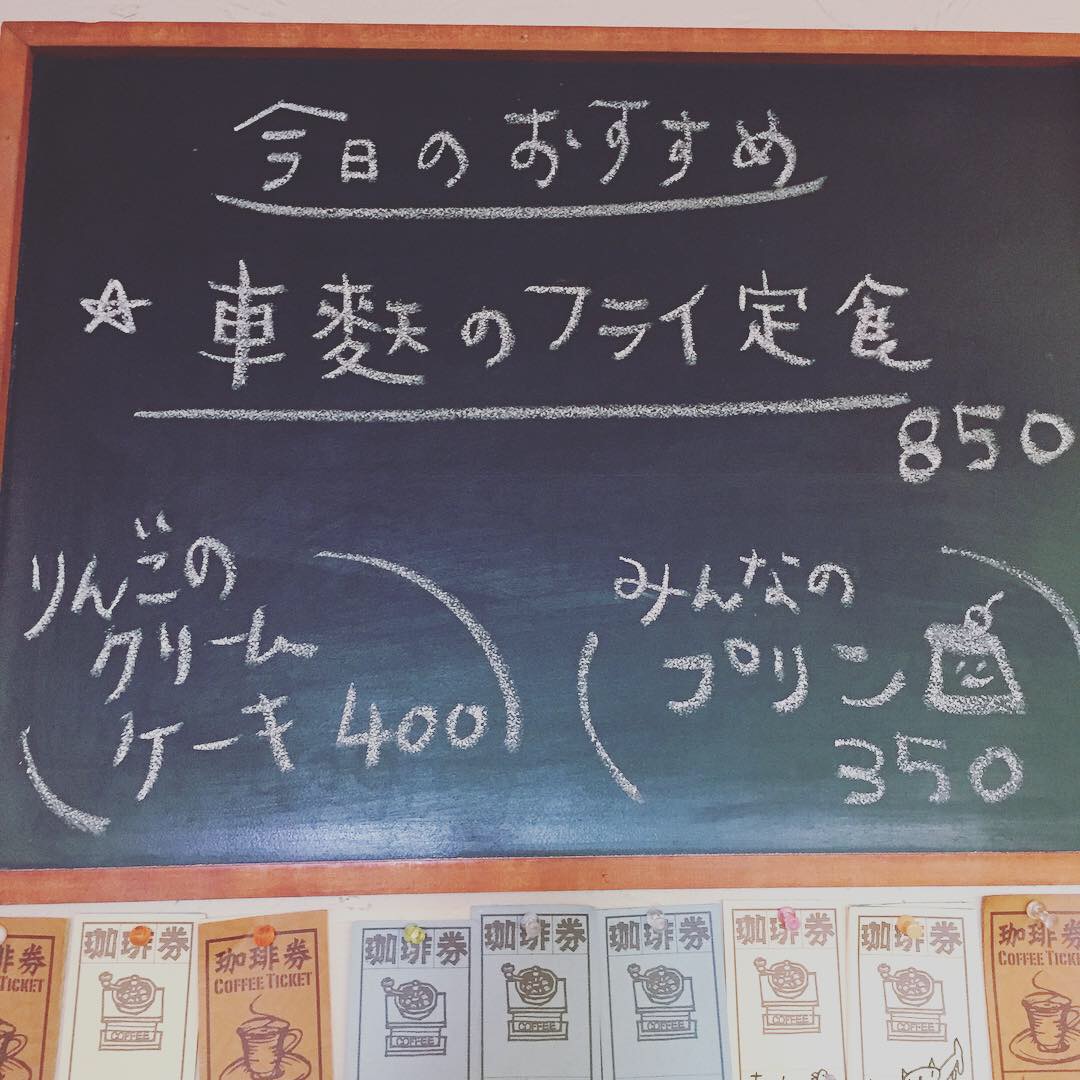 今日のおすすめ
☆ 車麩のフライ定食
850
りんごの
クリーム
ケーキ 400
みんなの
プリン
350
珈琲券
珈琲券
珈琲券
COFFEE TICKET
珈琲券
珈琲券
珈琲券
珈琲券
珈琲券
珈琲券
COFFEE TICKET
COFFEE
COFFEE
COFFEE
COFFEE
COFFEE
COFFEE